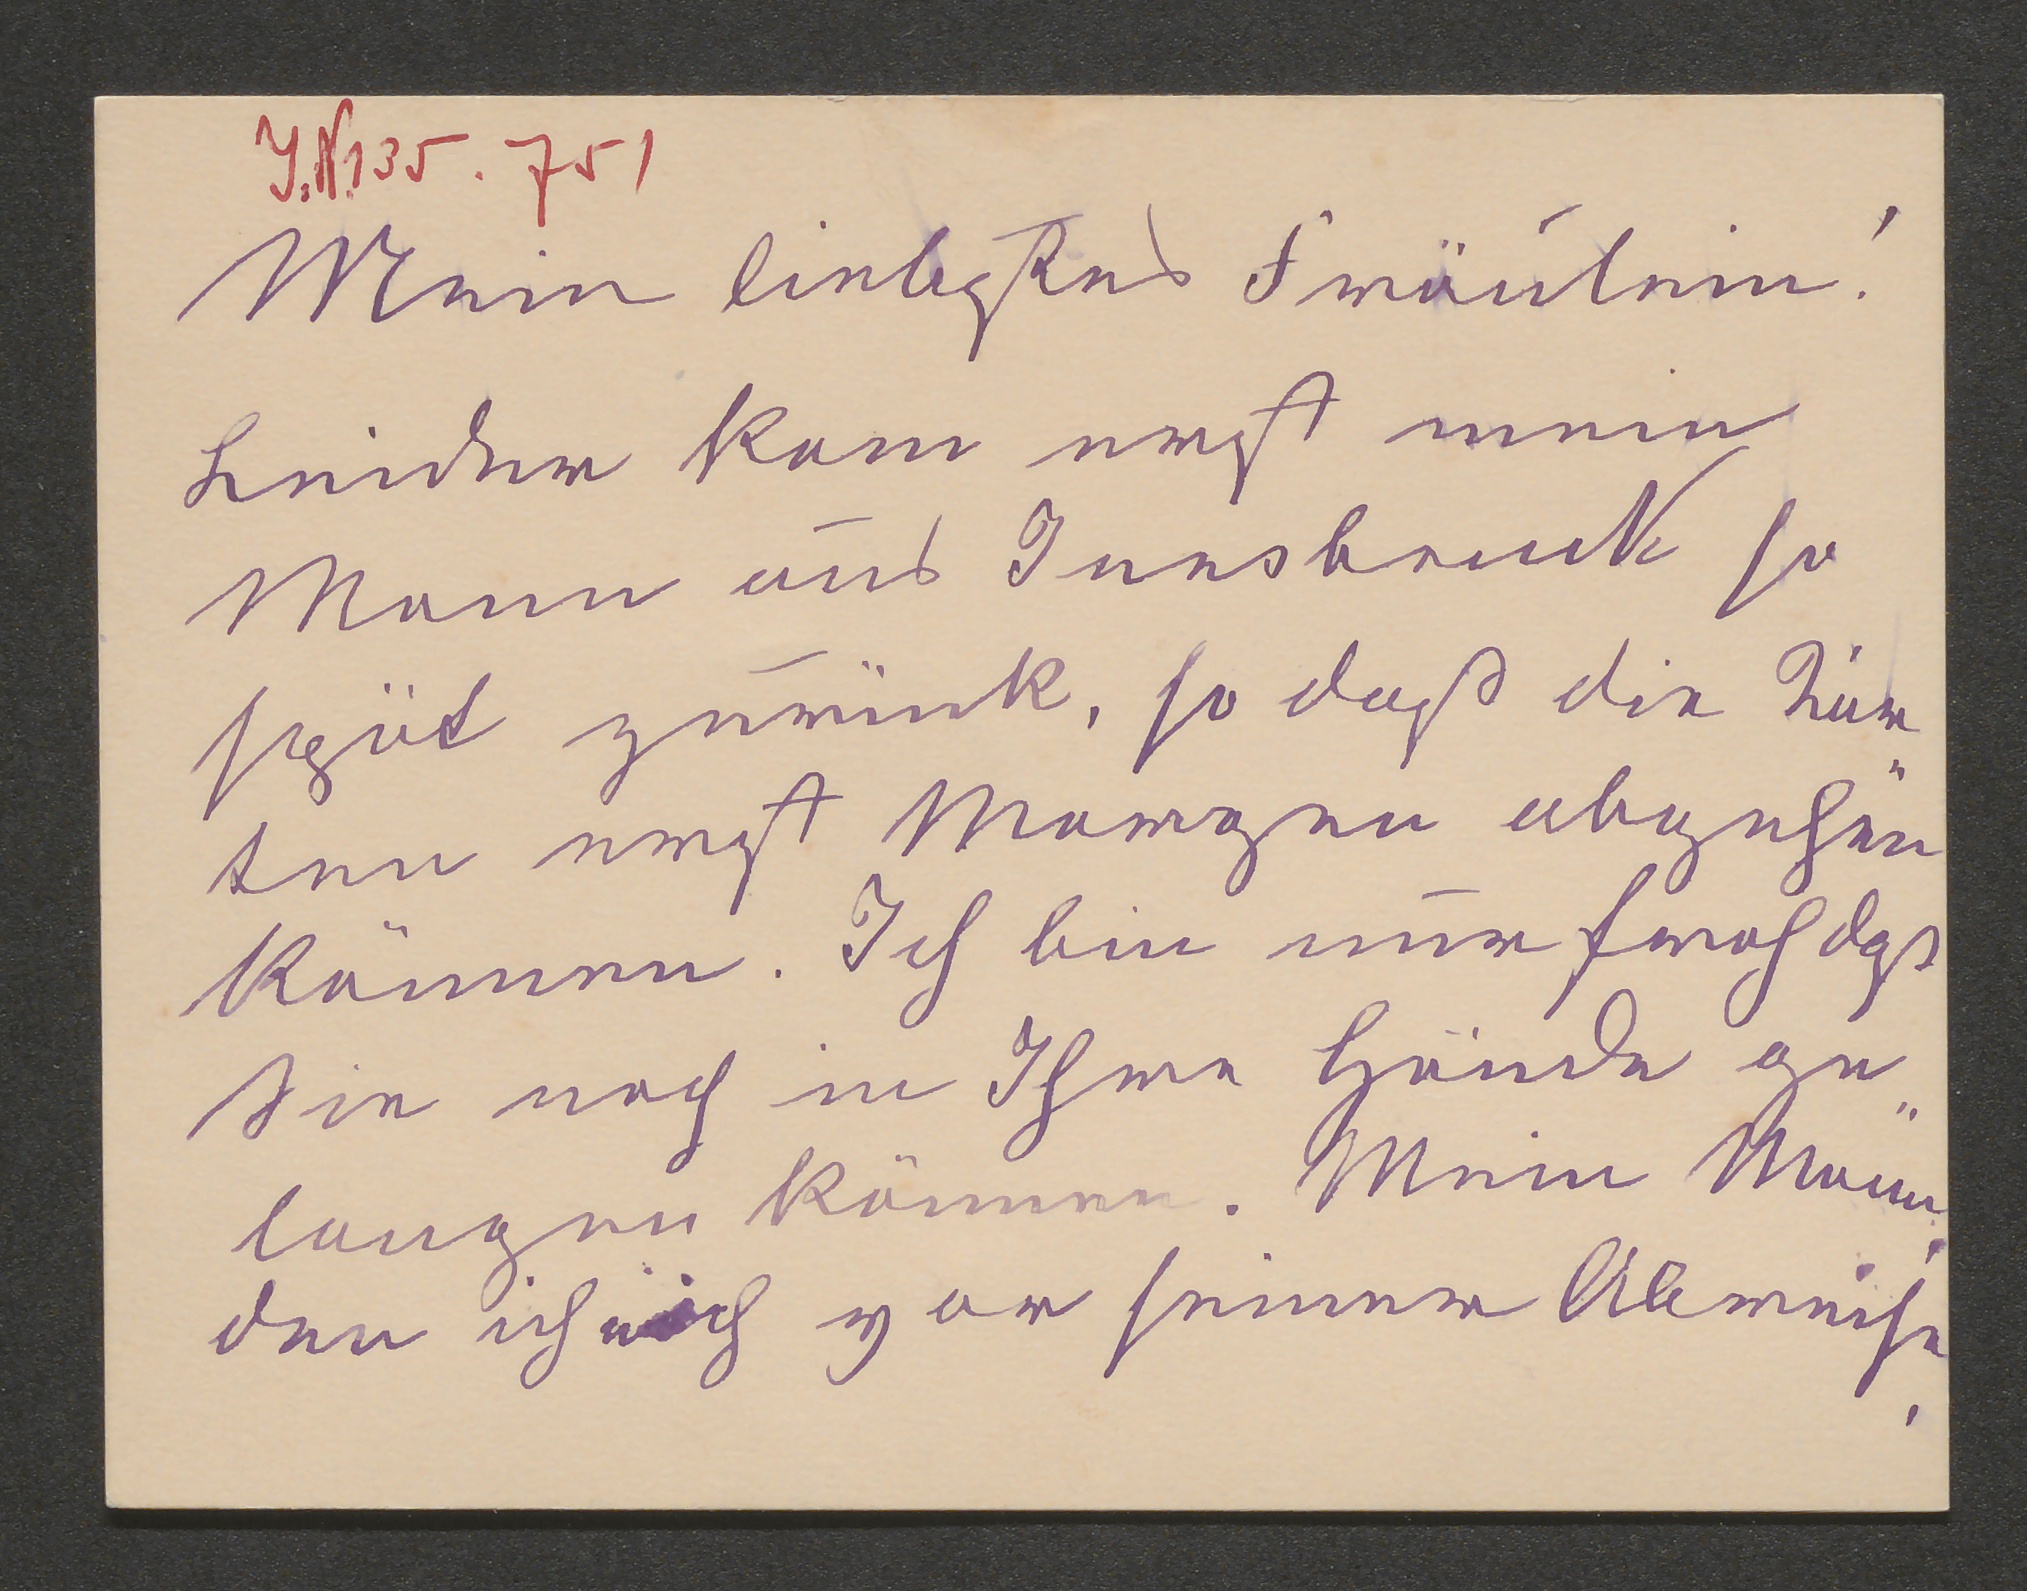 J.N. 135.751
Mein liebstes Fräulein!
Leider kam erst mein
Mann aus Innsbruck so
spät zurück, so daß die Kar
ten erst Morgen abgehen
können. Ich bin nur froh daß
sie noch in Ihre Hände ge
langen können. Mein Mann,
den ich vor seiner Abreise,